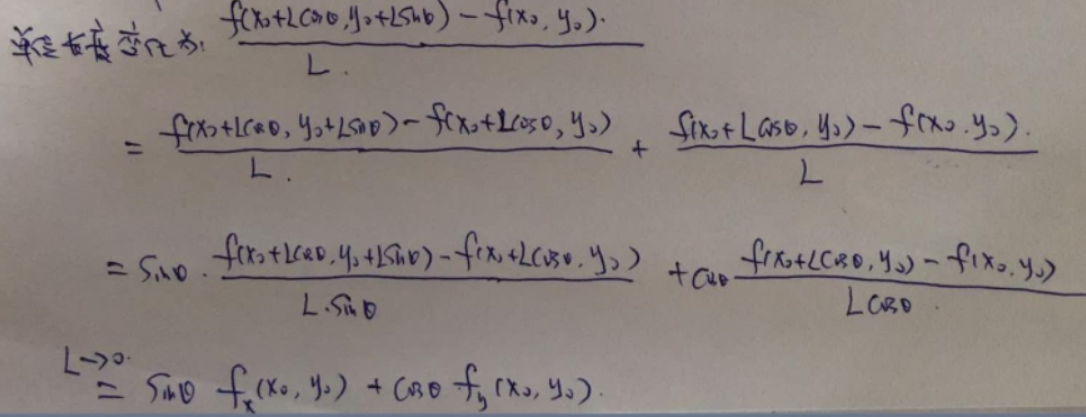 单位长度变化为: \frac{f(x_0+L\cos\theta, y_0+L\sin\theta)-f(x_0, y_0)}{L}
= \frac{f(x_0+L\cos\theta, y_0+L\sin\theta)-f(x_0+L\cos\theta, y_0)}{L} + \frac{f(x_0+L\cos\theta, y_0)-f(x_0, y_0)}{L}
= \sin\theta \cdot \frac{f(x_0+L\cos\theta, y_0+L\sin\theta)-f(x_0+L\cos\theta, y_0)}{L \cdot \sin\theta} + \cos\theta \frac{f(x_0+L\cos\theta, y_0)-f(x_0, y_0)}{L\cos\theta}
\overset{L \to 0}{=} \sin\theta f_x(x_0, y_0) + \cos\theta f_y(x_0, y_0).